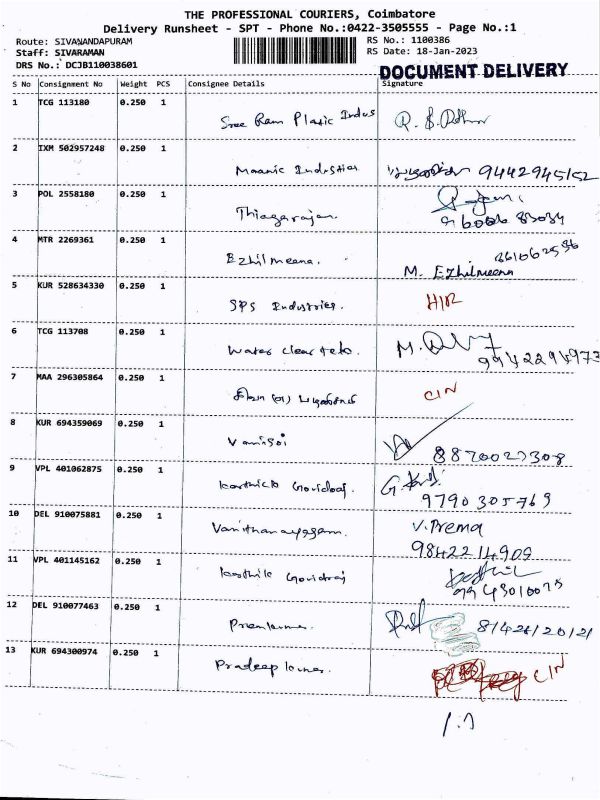 THE PROFESSIONAL COURIERS, Coimbatore
Delivery Runsheet - SPT - Phone No.:0422-3505555 - Page No.:1
Route: SIVANANDAPURAM RS No.: 1100386
Staff: SIVARAMAN RS Date: 18-Jan-2023
DRS No.: DCJB110038601
DOCUMENT DELIVERY
S No Consignment No Weight PCS Consignee Details Signature
1 TCG 113180 0.250 1
Sree Ram Plasic Indus
2 IXM 502957248 0.250 1
Maanic Industies 9442945152
3 POL 2558180 0.250 1
Thiagarajan.
4 MTR 2269361 0.250 1
Ezhilmeena. M. Ezhilmeena
5 KUR 528634330 0.250 1
SPS Industries. HIR
6 TCG 113708 0.250 1
Water clear teks.
9942294973
7 MAA 296305864 0.250 1
CIN
8 KUR 694359069 0.250 1
8870027308
9 VPL 401062875 0.250 1
karthick Govidraj.
9790305769
10 DEL 910075881 0.250 1
Vanithanayagam. V. Prema
9842214909
11 VPL 401145162 0.250 1
karthik Govidraj
9943010075
12 DEL 910077463 0.250 1
Premkumar.
13 KUR 694300974 0.250 1
Pradeep kumar. CIN